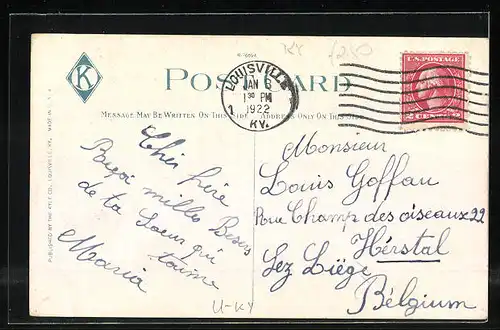 K
POST CARD
LOUISVILLE
JAN 6
1 30 PM
1922
1
KY.
U.S. POSTAGE
2 CENTS 2
MESSAGE MAY BE WRITTEN ON THIS SIDE
ADDRESS ONLY ON THIS SIDE
PUBLISHED BY THE KYLE CO., LOUISVILLE, KY. MADE IN U. S. A.
Cher frère
Reçoi milles Besers
de ta Soeur qui
t'aime
Maria
Monsieur
Louis Goffau
Rue Champ des oiseaux 22
Hèrstal
Lez Liège
Bélgium
U-KY
KY